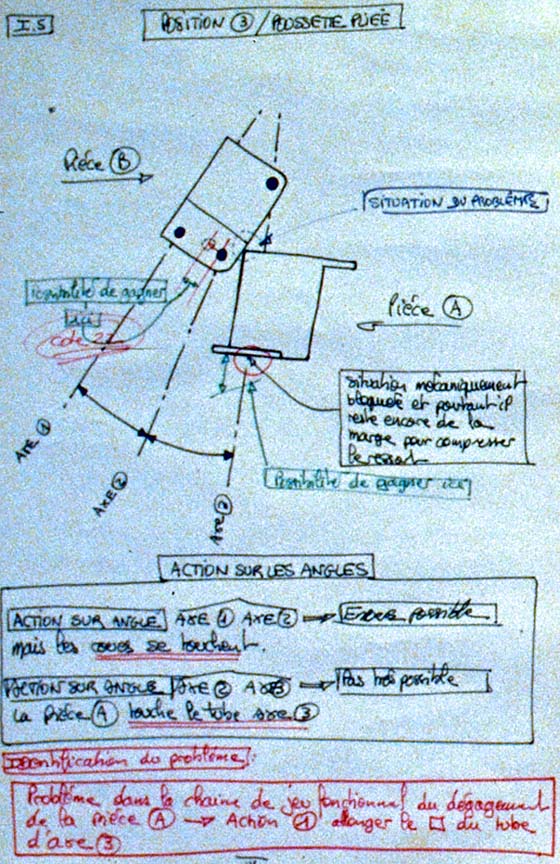 I.5
POSITION ③ / POUSSETTE PLIÉE
Pièce Ⓑ
SITUATION DU PROBLÈME
Possibilité de gagner
ici
cote 22
Pièce Ⓐ
Situation mécaniquement
bloquée et pourtant il
reste encore de la
marge pour compresser
le ressort
Possibilité de gagner ici
AXE ①
AXE ②
Axe
ACTION SUR LES ANGLES
ACTION SUR ANGLE AXE ① AXE ② → possible
mais les se touchent.
ACTION SUR ANGLE AXE ② AXE ③ → Pas très possible
La pièce Ⓐ touche le tube axe ③
Identification du problème :
Problème dans la chaine de jeu fonctionnel du dégagement
de la pièce Ⓐ → Action ① allonger le □ du tube
d'axe ③